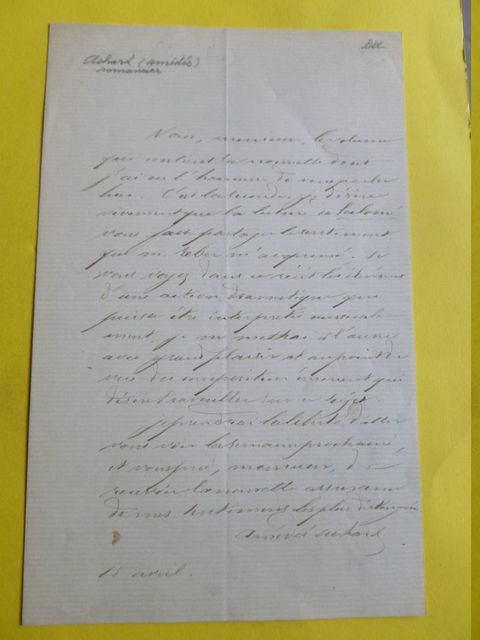 Achard (Amédée)
romancier
Voici, monsieur, le volume
qui contient la nouvelle dont
j'ai eu l'honneur de vous parler
hier. C'est la seconde. Je désire
vivement que la lecture de Salomé
vous fasse partager le sentiment
que m. Reber m'a exprimé. Si
vous voyez dans ce récit les éléments
d'une action dramatique qui
puisse être interprétée musicale
ment, je me mettrai à l'œuvre
avec grand plaisir et au point de
vue du compositeur éminent qui
désire travailler sur ce sujet.
Je prendrai la liberté d'aller
vous voir la semaine prochaine,
et vous prie, monsieur, de
recevoir la nouvelle assurance
de mes sentiments les plus distingués
Amédée Achard
15 avril.